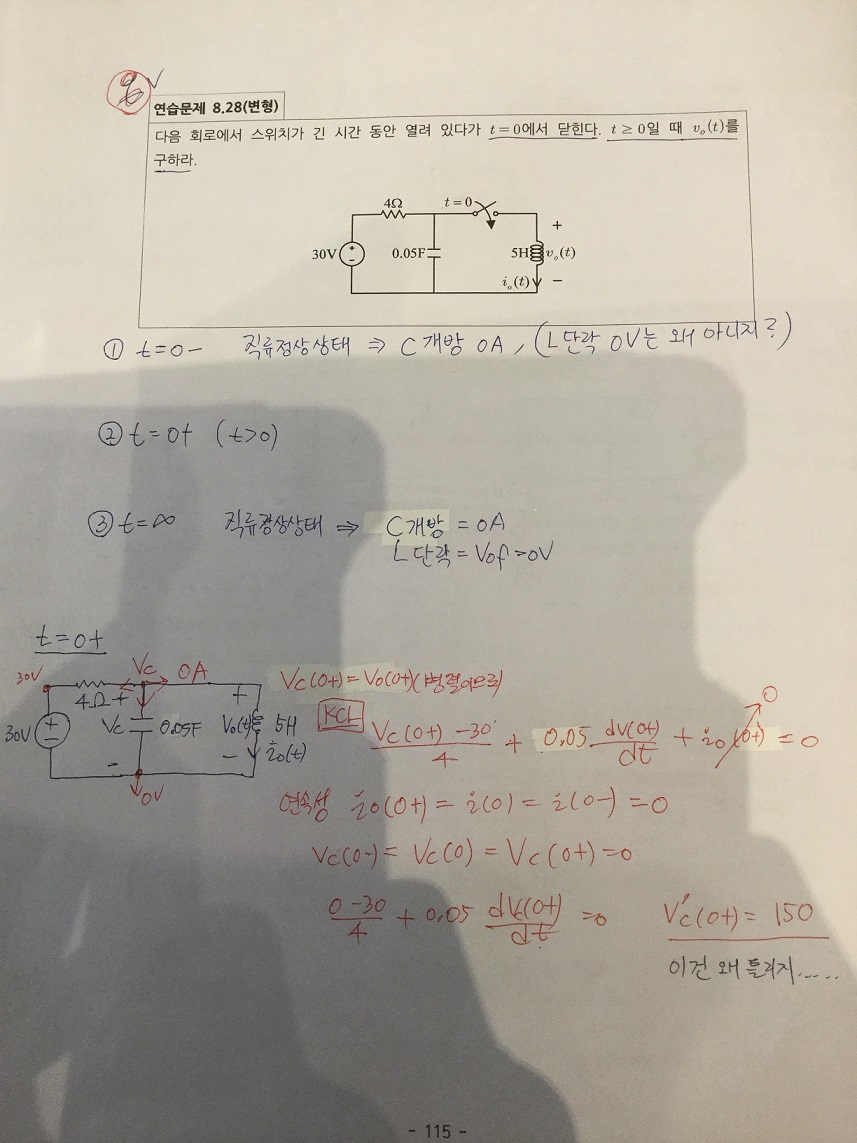 연습문제 8.28(변형)
다음 회로에서 스위치가 긴 시간 동안 열려 있다가 t=0에서 닫힌다. t≥0일 때 vₒ(t)를
구하라.
4Ω
t=0
30V
0.05F
5H
vₒ(t)
iₒ(t)
① t=0- 직류정상상태 ⇒ C 개방 0A, (L단락 0V는 왜 아니지?)
② t=0+ (t>0)
③ t=∞ 직류정상상태 ⇒ C개방 = 0A
L단락 = Vof=0V
t=0+
30V
Vc
0A
4Ω
30V
Vc
0.05F
Vo(t)
5H
io(t)
0V
Vc(0+)=Vo(0+)(병렬이므로)
KCL
Vc(0+)-30/4 + 0.05 dv(0+)/dt + io(0+) = 0
0
연속성 io(0+) = i(0) = i(0-) = 0
Vc(0-) = Vc(0) = Vc(0+)=0
0-30/4 + 0.05 dVc(0+)/dt =0 Vc'(0+) = 150
이건 왜 틀리지.....
- 115 -